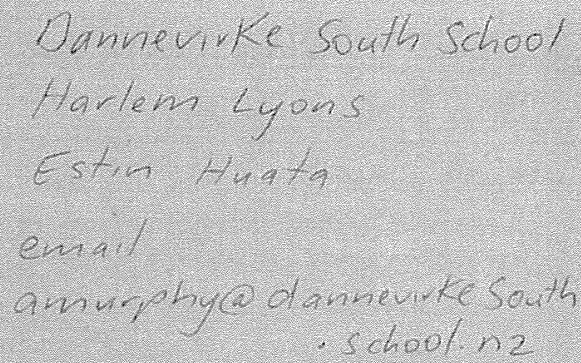 Dannevirke South School
Harlem Lyons
Estin Huata
email
amurphy@dannevirkesouth
.school.nz